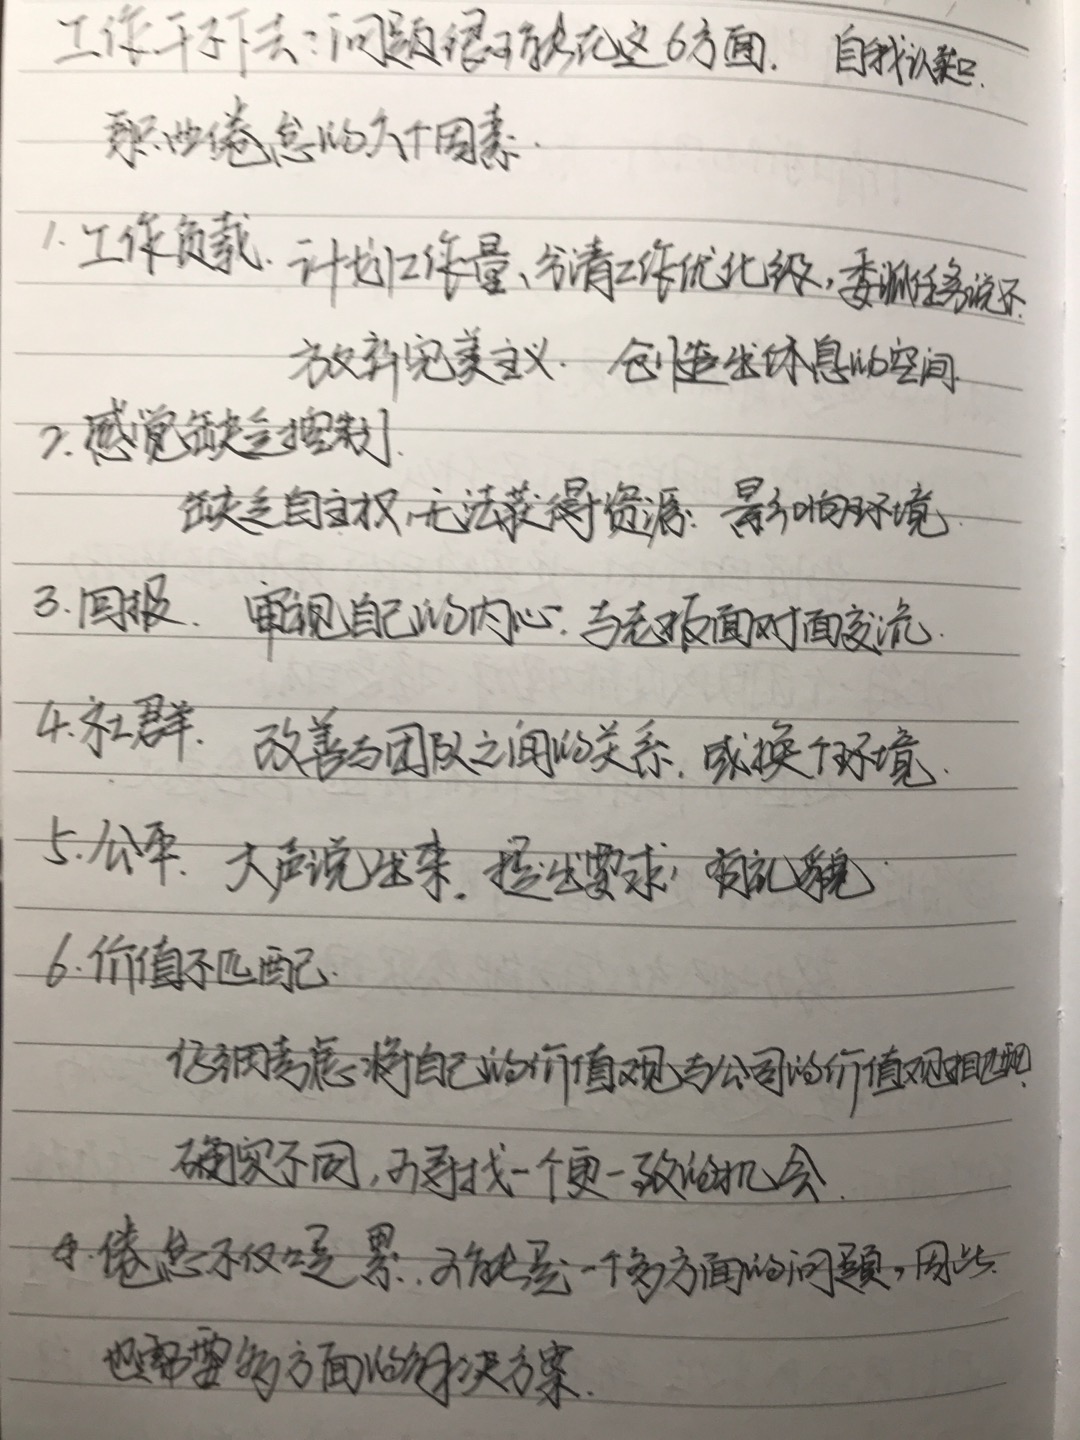 工作干不下去：问题很可能在这6方面. 自我认知.
职业倦怠的六个因素.
1. 工作负载. 计划工作量、分清工作优化级，委派任务说不
放弃完美主义. 创造出休息的空间
2. 感觉缺乏控制.
缺乏自主权，无法获得资源：影响环境.
3. 回报. 审视自己的内心：与老板面对面交流.
4. 社群. 改善与团队之间的关系，或换个环境.
5. 公平. 大声说出来. 提出要求，有礼貌.
6. 价值不匹配.
仔细考虑将自己的价值观与公司的价值观相匹配.
确实不同，可寻找一个更一致的机会.
倦怠不仅只是累. 可能是一个多方面的问题，因此
也需要多方面的解决方案.